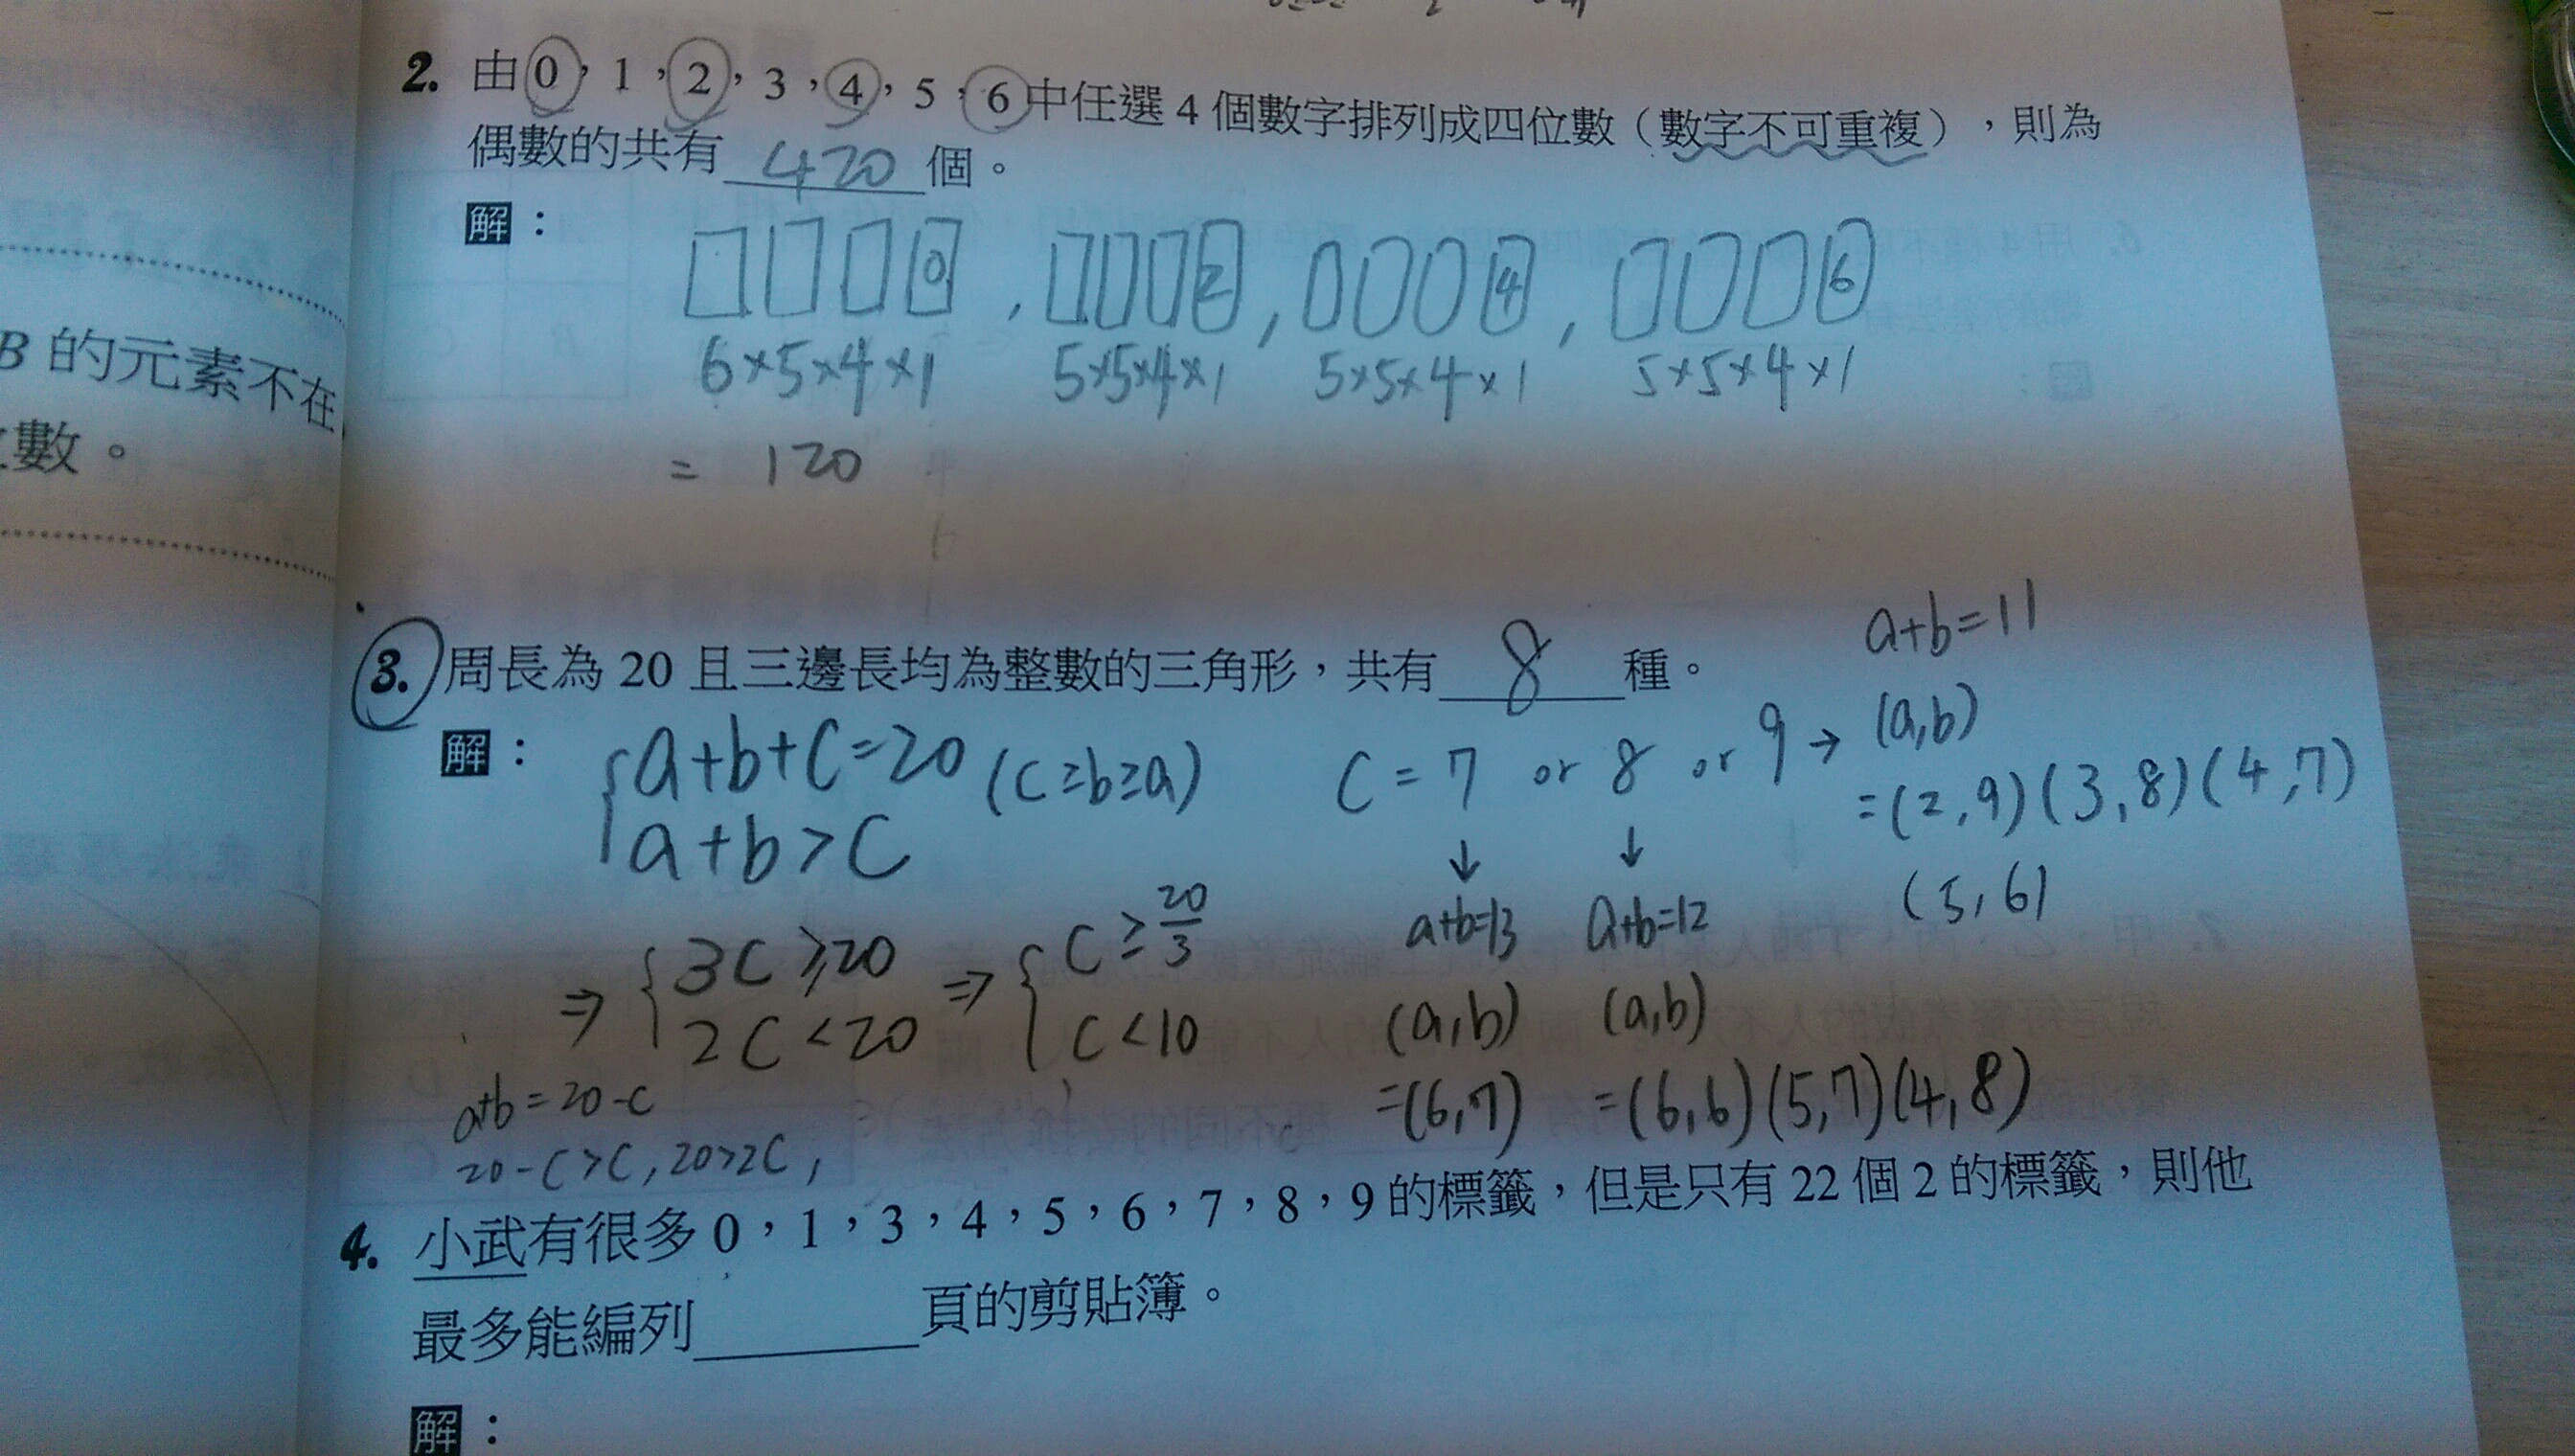 2. 由0，1，2，3，4，5，6中任選4個數字排列成四位數（數字不可重複），則為
偶數的共有 420 個。
解：
0 , 2 , 4 , 6
6×5×4×1 5×5×4×1 5×5×4×1 5×5×4×1
= 120
B的元素不在
數。
3. 周長為20且三邊長均為整數的三角形，共有 8 種。
解：
a+b+c=20 (c≥b≥a)
a+b>c
⇒ 3c≥20 ⇒ c≥20/3
2c<20 c<10
a+b=20-c
20-c>c, 20>2c,
c = 7 or 8 or 9 →
a+b=11
(a,b)
=(2,9)(3,8)(4,7)
(5,6)
↓ ↓
a+b=13 a+b=12
(a,b) (a,b)
=(6,7) =(6,6)(5,7)(4,8)
4. 小武有很多0，1，3，4，5，6，7，8，9的標籤，但是只有22個2的標籤，則他
最多能編列 頁的剪貼簿。
解：